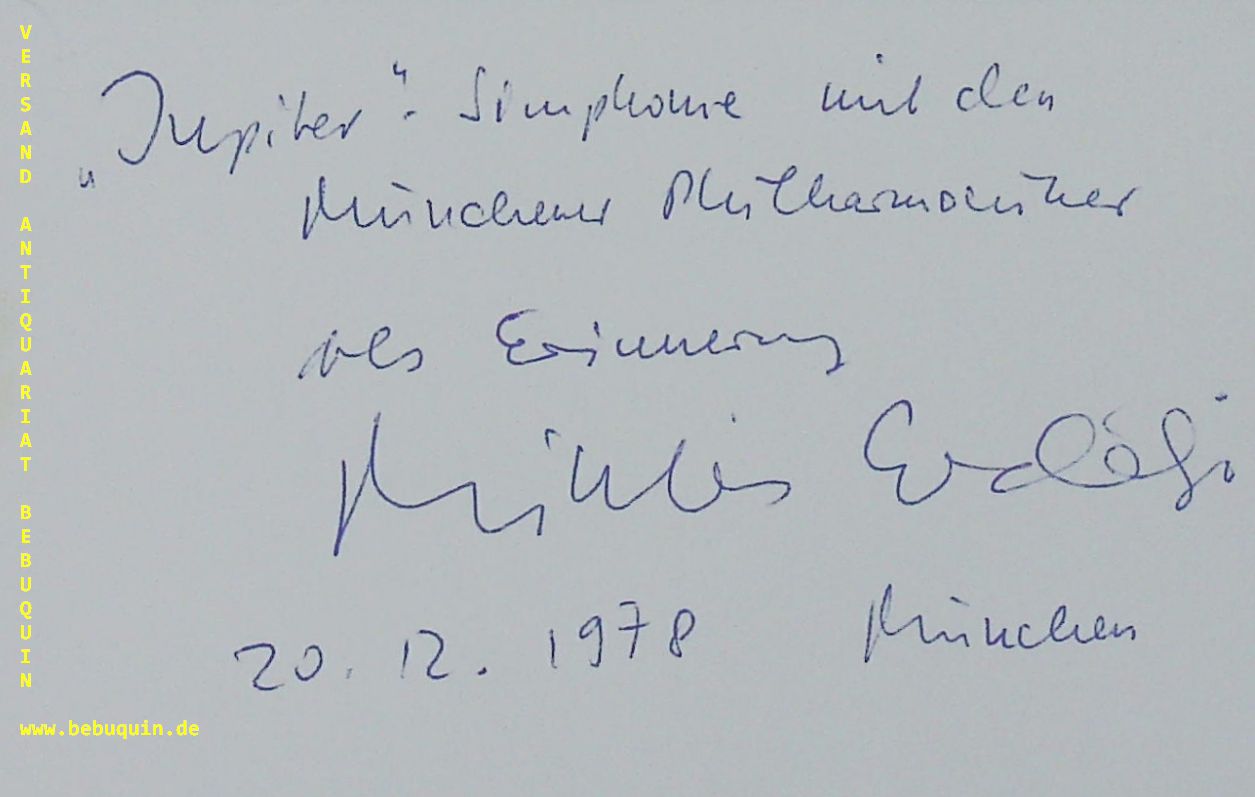 „Jupiter“- Simphonie mit den
Münchener Philharmoniker
als Erinnerung
Miklós Erdélyi
20. 12. 1978 München
VERSAND ANTIQUARIAT BEBUQUIN
www.bebuquin.de